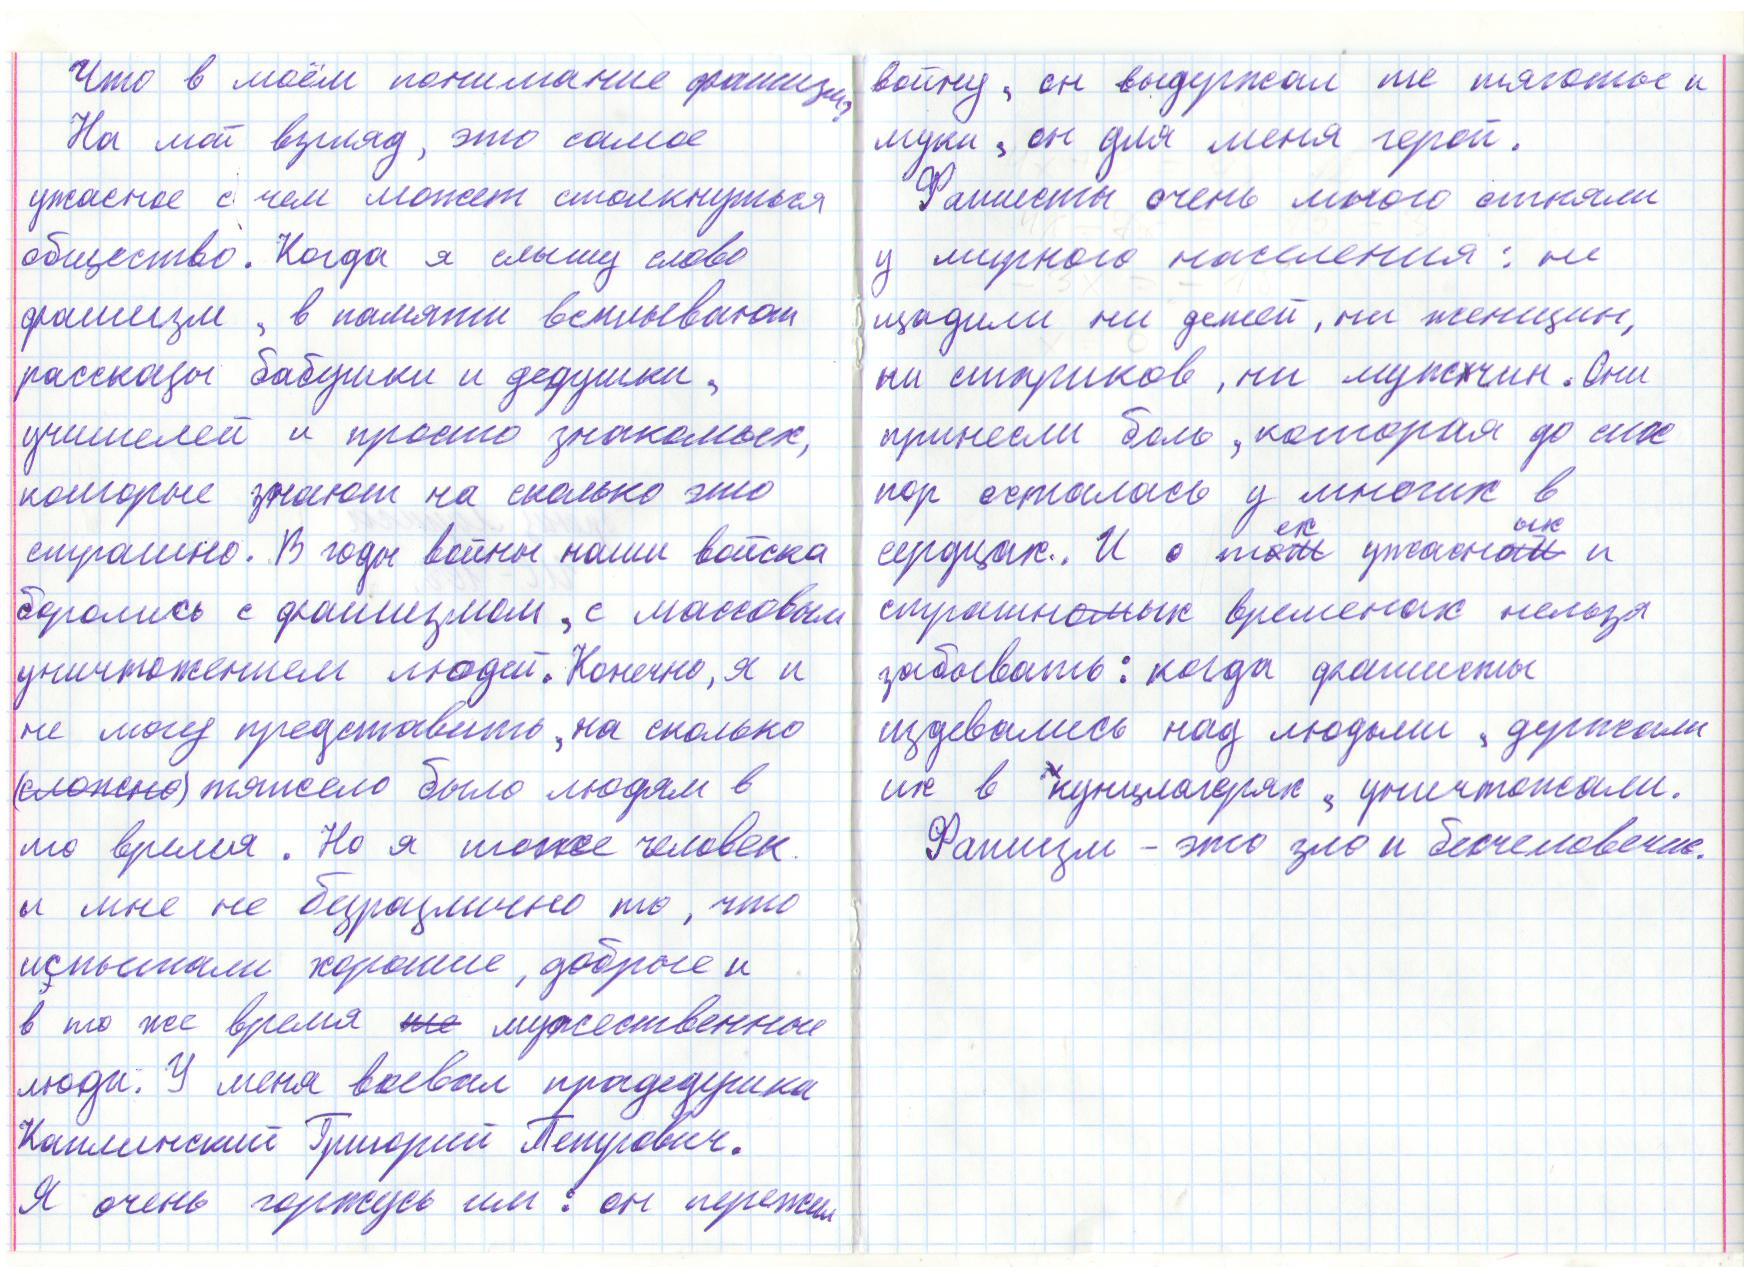 Что в моём понимание фашизм?
На мой взгляд, это самое
ужасное с чем может столкнуться
общество. Когда я слышу слово
фашизм, в памяти всплывают
рассказы бабушки и дедушки,
учителей и просто знакомых,
которые знают на сколько это
страшно. В годы войны наши войска
боролись с фашизмом, с массовым
уничтожением людей. Конечно, я и
не могу представить, на сколько
(сложно) тяжело было людям в
то время. Но я тоже человек
и мне не безразлично то, что
испытали хорошие, добрые и
в то же время же мужественные
люди. У меня воевал прадедушка
Каплинский Григорий
Я очень горжусь им: он пережил
войну, он выдержал те тяготые и
муки, он для меня герой.
Фашисты очень много отняли
у мирного населения: не
щадили ни детей, ни женщин,
ни стариков, ни мужчин. Они
принесли боль, которая до сих
пор осталась у многих в
сердцах. И о тех ужасных и
страшных временах нельзя
забывать: когда фашисты
издевались над людьми, держали
их в кунцлагерях, уничтожали.
Фашизм - это зло и бесчеловечие.